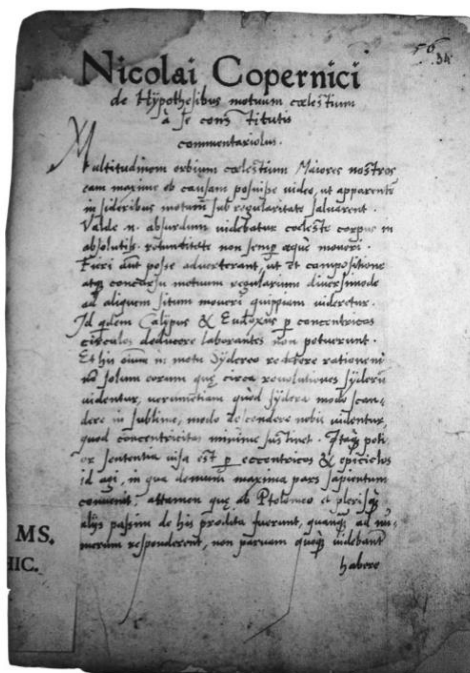 56
34
Nicolai Copernici
de Hypothesibus motuum cœlestium
à se constitutis
commentariolus.
Multitudinem orbium cœlestium Maiores nostros
eam maxime ob causam posuisse video, ut apparentē
in sideribus motum sub regularitate salvarent.
Valde .n. absurdum videbatur cœleste corpus in
absolutiss. rotunditate non semp æque moveri.
Fieri aut posse adverterant, ut et compositione
atq concursu motuum regularium diversimode
ad aliquem situm moveri quippiam videretur.
Id qdem Calippus & Eudoxus p concentricos
circulos deducere laborantes non potuerunt.
Et his oium in motu sydereo reddere rationem
nō solum eorum quę circa revolutiones syderū
videntur, verumetiam quòd sydera modo scan-
dere in sublime, modo descendere nobis videntur,
quod concentricitas minime sustinet. Itaq poti-
or sententia visa est p eccentricos & epiciclos
id agi, in qua demum maxima pars sapientum
convenit, attamen quę ab Ptolomeo et plerisq
alijs passim de his prodita fuerunt, quanq ad nu-
merum responderent, non parvam quoq videbant
habere
MS.
HIC.